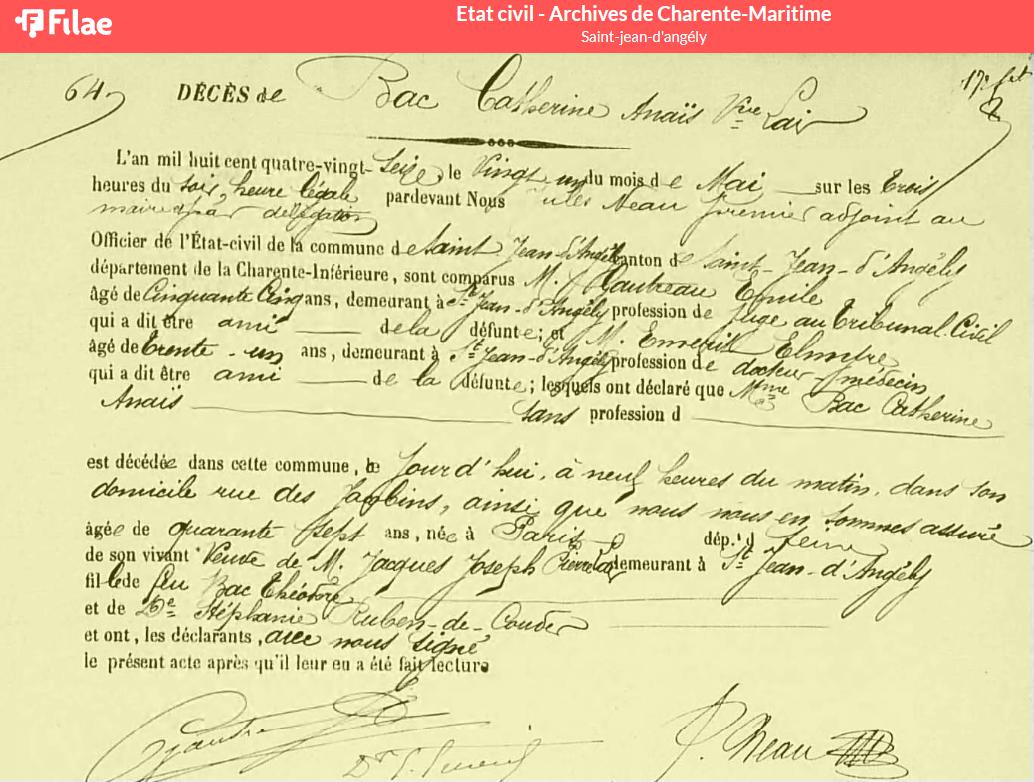 Filae
Etat civil - Archives de Charente-Maritime
Saint-jean-d'angély
64
DÉCÈS de Bac Catherine Anaïs Vve Lair
L'an mil huit cent quatre-vingt-Seize, le Vingt un du mois de Mai sur les trois
heures du soir, heure légale pardevant Nous Jules Neau premier adjoint au
maire par délégation
Officier de l'État-civil de la commune de Saint Jean-d'Angély canton de Saint-Jean-d'Angély
département de la Charente-Inférieure, sont comparus M. Gautreau Emile
âgé de Cinquante Cinq ans, demeurant à St Jean-d'Angély profession de Juge au Tribunal Civil
qui a dit être ami de la défunte; et M.
âgé de trente-un ans, demeurant à St Jean-d'Angély profession de docteur médecin
qui a dit être ami de la défunte; lesquels ont déclaré que Mme Bac Catherine
Anaïs sans profession d
est décédée dans cette commune, le jour d'hui, à neuf heures du matin, dans son
domicile rue des Jacobins, ainsi que nous nous en sommes assuré
âgée de quarante sept ans, née à Paris dép.t d Seine
de son vivant Veuve de M. Jacques Joseph Pierre Lair demeurant à St Jean-d'Angély
fille de feu Bac Théodore
et de De Stéphanie Ruben-de-Couder
et ont, les déclarants, avec nous signé
le présent acte après qu'il leur en a été fait lecture
J. Neau